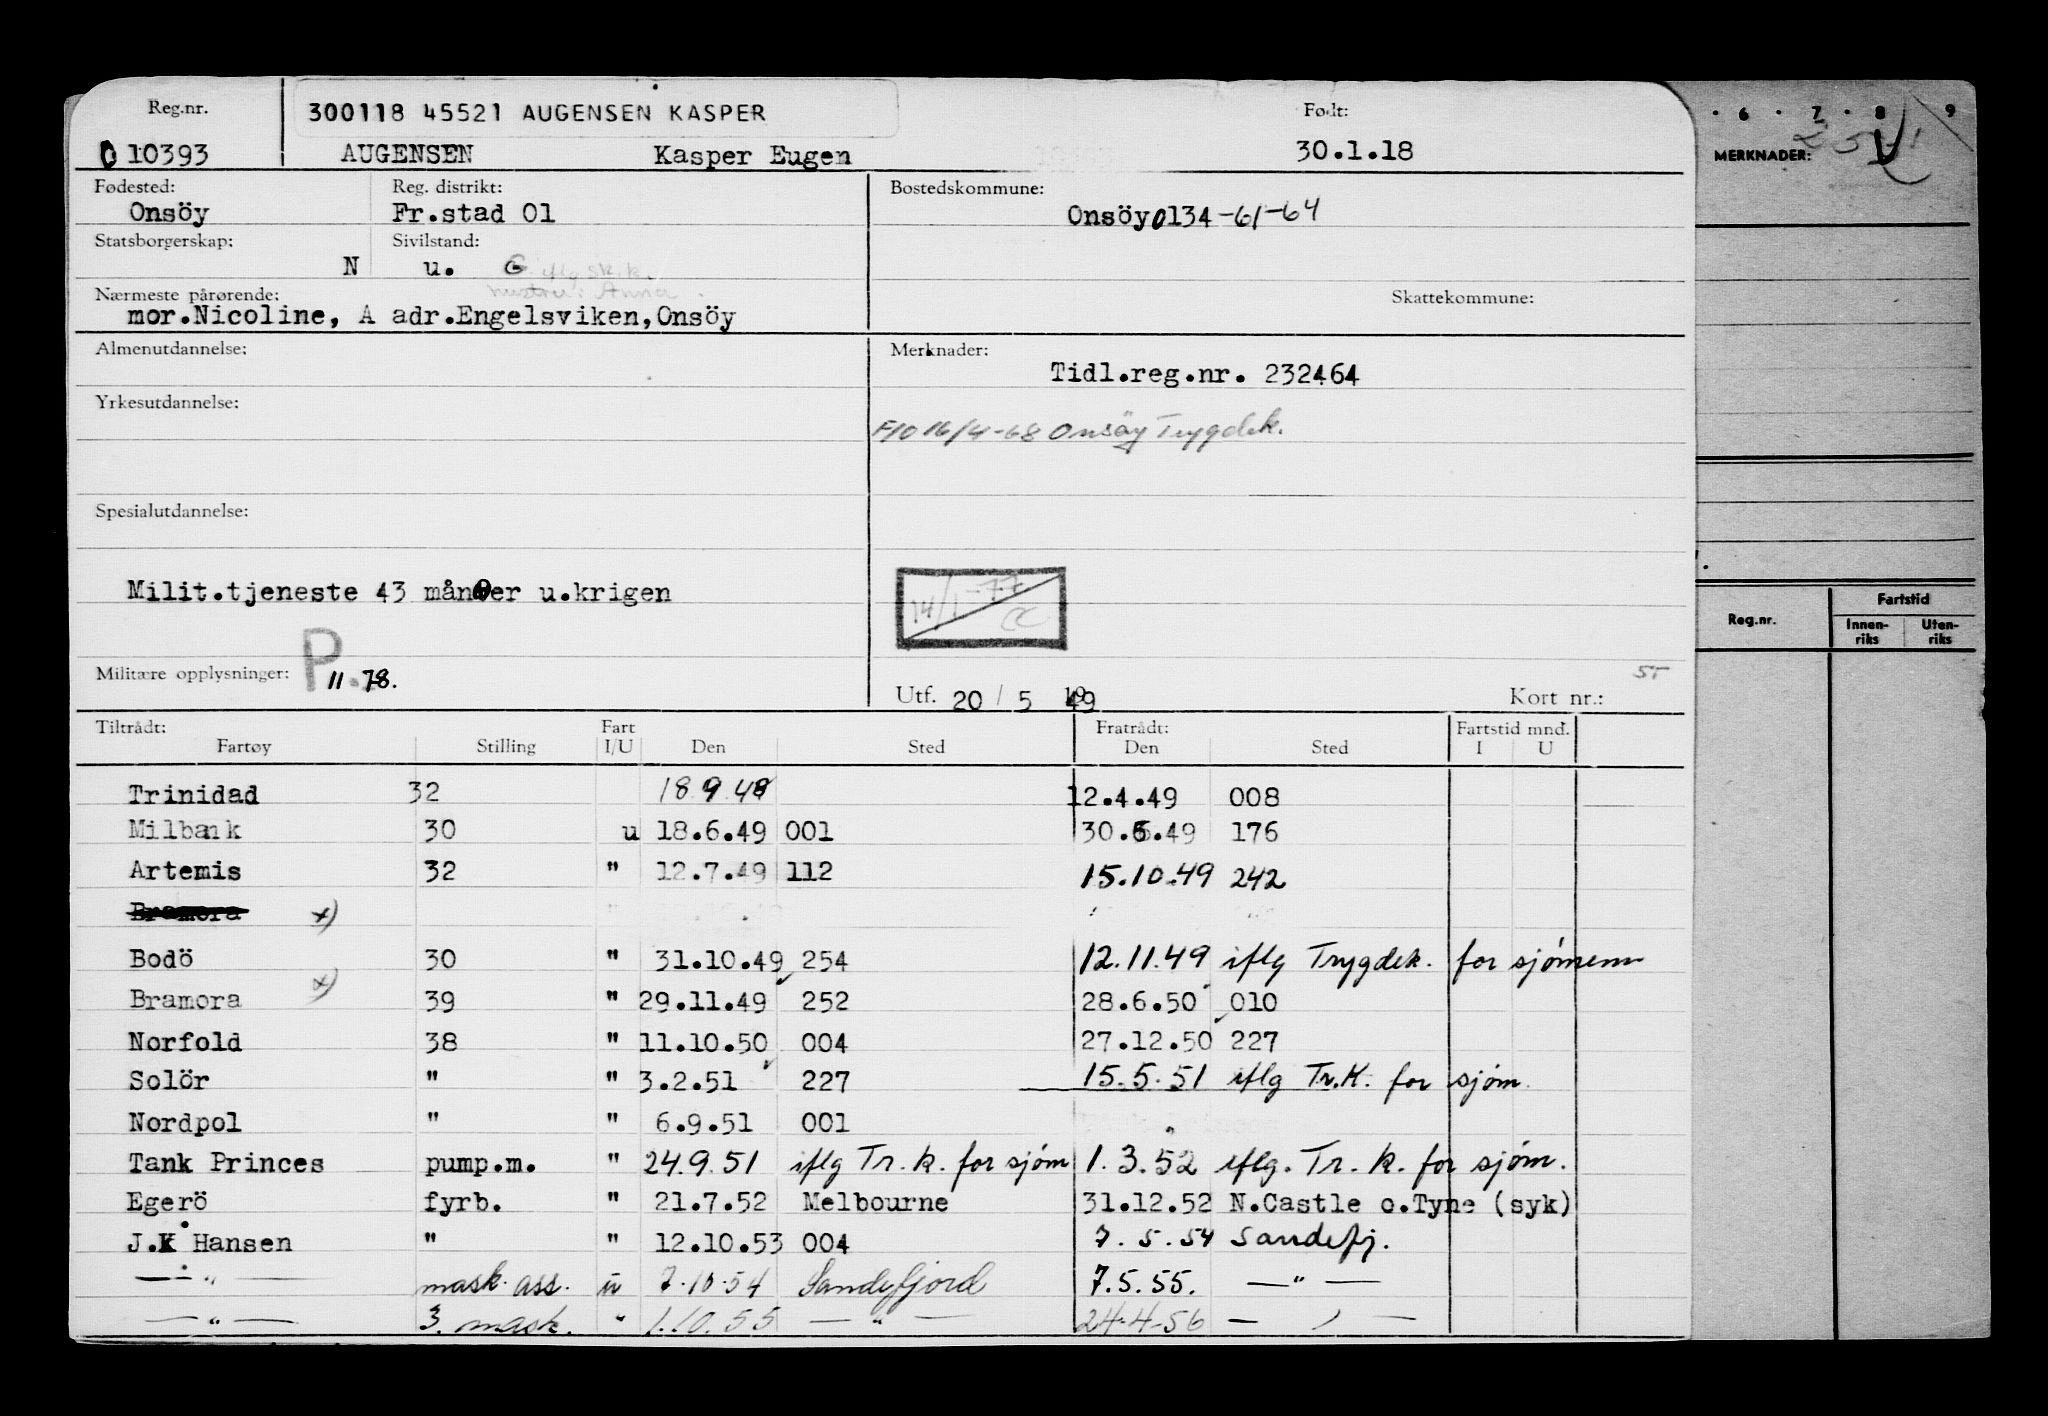 Reg.nr. 300118 45521 AUGENSEN KASPER Født:
0 10393 AUGENSEN Kasper Eugen 30.1.18
Fødested: Reg. distrikt: Bostedskommune:
Onsöy Fr.stad 01 Onsöy 0134 -61-64
Statsborgerskap: Sivilstand:
N u. G iflg sk.k.
hustru: Anna
Nærmeste pårørende: Skattekommune:
mor.Nicoline, A adr.Engelsviken,Onsöy
Almenutdannelse: Merknader:
Tidl.reg.nr. 232464
Yrkesutdannelse:
F10 16/4-68 Onsöy Trygdek.
Spesialutdannelse:
Milit.tjeneste 43 måneder u.krigen
14/1-77
P
Militære opplysninger: 11.78.
Utf. 20 / 5 1949 Kort nr.: ST
Tiltrådt: Fart Fratrådt: Fartstid mnd.
Fartøy Stilling I/U Den Sted Den Sted I U
Trinidad 32 18.9.48 12.4.49 008
Milbank 30 u 18.6.49 001 30.6.49 176
Artemis 32 " 12.7.49 112 15.10.49 242
Bramora x)
Bodö 30 " 31.10.49 254 12.11.49 iflg Trygdek. for sjømenn
Bramora x) 39 " 29.11.49 252 28.6.50 010
Norfold 38 " 11.10.50 004 27.12.50 227
Solör " " 3.2.51 227 15.5.51 iflg Tr.K. for sjøm.
Nordpol " " 6.9.51 001
Tank Princes pump.m. " 24.9.51 iflg Tr.k. for sjøm 1.3.52 iflg. Tr.k. for sjøm.
Egerö fyrb. " 21.7.52 Melbourne 31.12.52 N.Castle o.Tyne (syk)
J.K Hansen " " 12.10.53 004 7.5.54 Sandefj.
— " — mask.ass. u 7.10.54 Sandefjord 7.5.55. — " —
— " — 3. mask. " 1.10.55 — " — 24.4.56 — " —
6 . 7 . 8 . 9
MERKNADER:
Reg.nr. Fartstid
Innen-riks Uten-riks